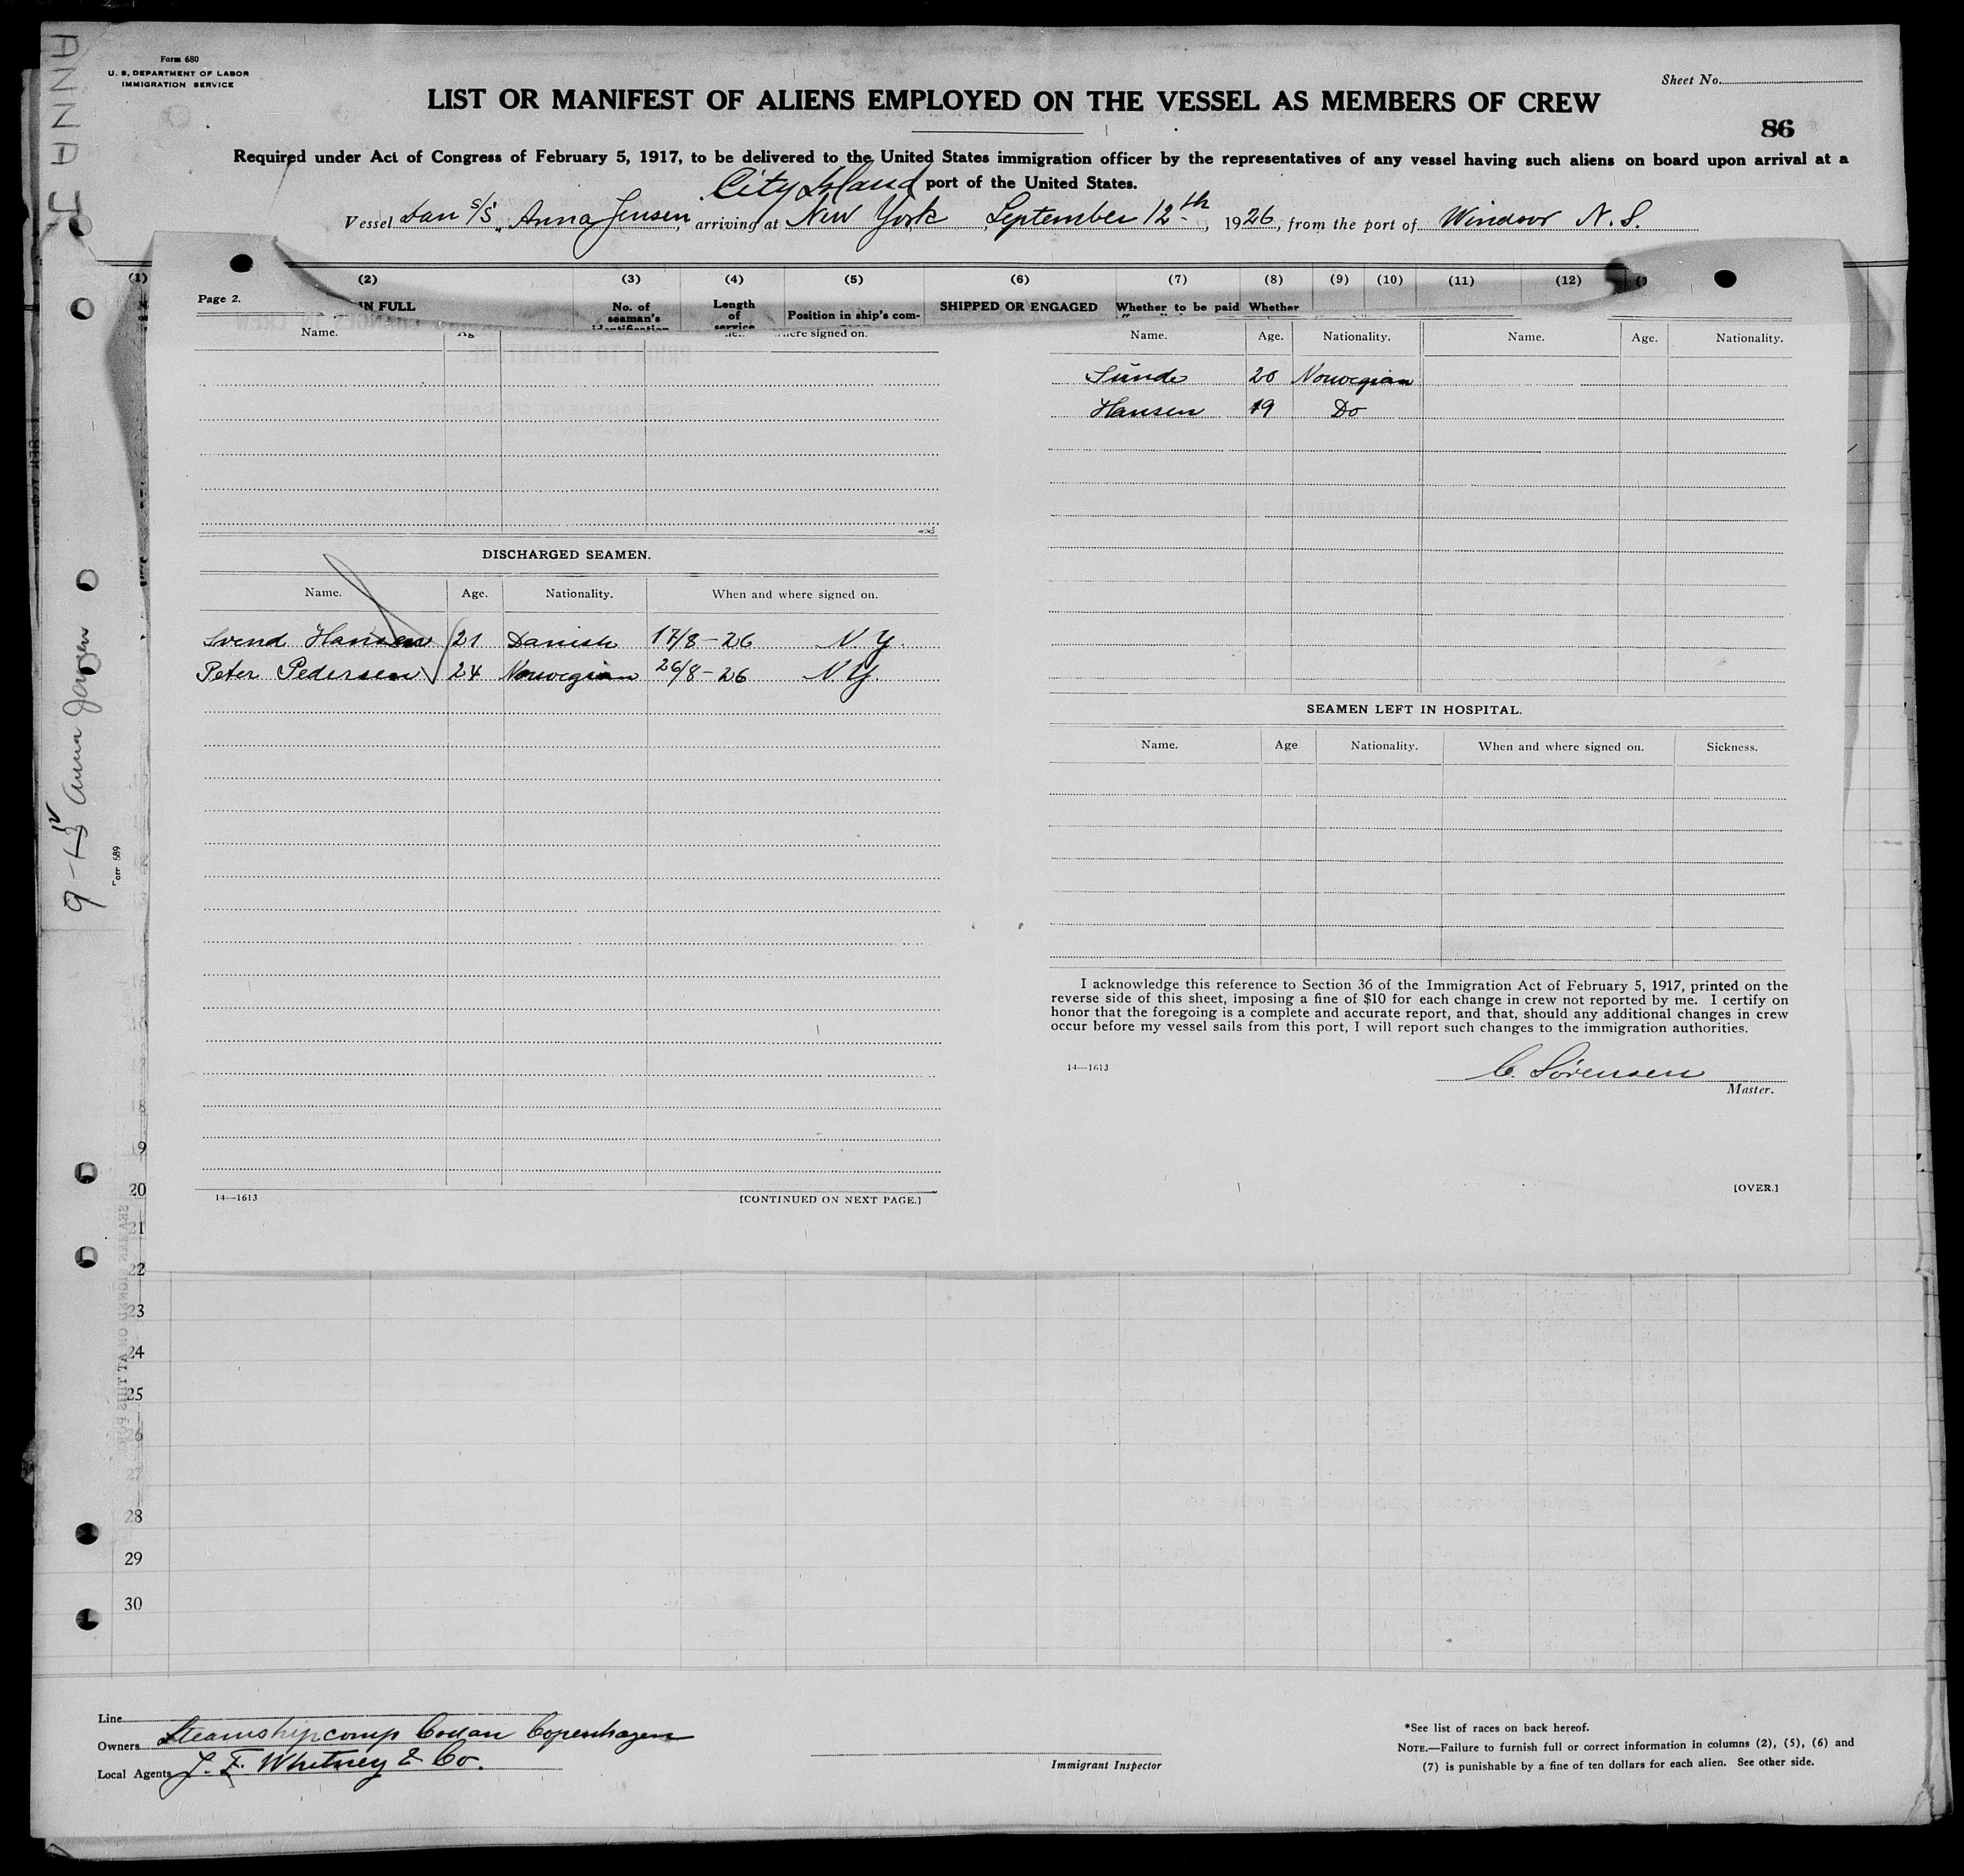 ANNA J
Form 680
U. S. DEPARTMENT OF LABOR
IMMIGRATION SERVICE
Sheet No.
LIST OR MANIFEST OF ALIENS EMPLOYED ON THE VESSEL AS MEMBERS OF CREW
86
Required under Act of Congress of February 5, 1917, to be delivered to the United States immigration officer by the representatives of any vessel having such aliens on board upon arrival at a
City Island port of the United States.
Vessel Dan S/S "Anna Jensen, arriving at New York, September 12th, 1926, from the port of Windsor N. S.
(1) (2) (3) (4) (5) (6) (7) (8) (9) (10) (11) (12)
Page 2. IN FULL No. of seaman's identification Length of service Position in ship's com- SHIPPED OR ENGAGED Whether to be paid Whether
Name. here signed on.
Name. Age. Nationality. Name. Age. Nationality.
Sunde 20 Norwegian
Hansen 19 Do
DISCHARGED SEAMEN.
Name. Age. Nationality. When and where signed on.
Svend Hansen 21 Danish 17/8-26 N. Y.
Peter Pedersen 24 Norwegian 26/8-26 N Y
14—1613 [CONTINUED ON NEXT PAGE.]
SEAMEN LEFT IN HOSPITAL.
Name. Age Nationality. When and where signed on. Sickness.
I acknowledge this reference to Section 36 of the Immigration Act of February 5, 1917, printed on the
reverse side of this sheet, imposing a fine of $10 for each change in crew not reported by me. I certify on
honor that the foregoing is a complete and accurate report, and that, should any additional changes in crew
occur before my vessel sails from this port, I will report such changes to the immigration authorities.
14—1613
C. Sörensen
Master.
[OVER.]
9 Anna Jensen
689
9
20
21
22
23
24
25
6
27
28
29
30
Line
Owners Steamshipcomp Copenhagen
Local Agents J. F. Whitney & Co.
Immigrant Inspector
*See list of races on back hereof.
NOTE.—Failure to furnish full or correct information in columns (2), (5), (6) and
(7) is punishable by a fine of ten dollars for each alien. See other side.